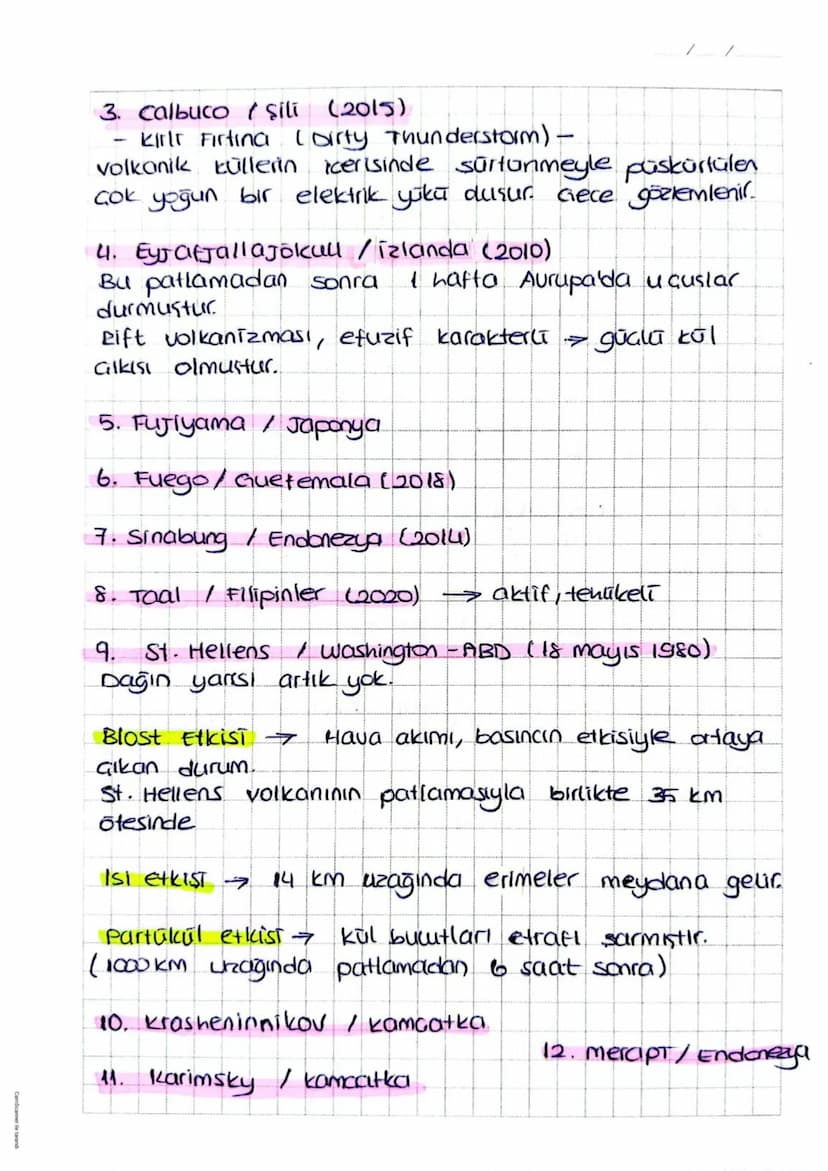 / /
3. Calbuco / Şili (2015)
- Kirli Fırtına (Dirty Thunderstorm) -
volkanik küllerin içerisinde sürtünmeyle püskürtülen
çok yoğun bir elektrik yükü düşür. Gece gözlemlenir.
4. Eyjafjallajökull / İzlanda (2010)
Bu patlamadan sonra 1 hafta Avrupa'da uçuşlar
durmuştur.
Rift volkanizması, efüzif karakterli → güçlü kül
çıkışı olmuştur.
5. Fujiyama / Japonya
6. Fuego / Guetemala (2018)
7. Sinabung / Endonezya (2014)
8. Taal / Filipinler (2020) → aktif, tehlikeli
9. St. Hellens / Washington - ABD (18 mayıs 1980)
Dağın yarısı artık yok.
Blast Etkisi → Hava akımı, basıncın etkisiyle ortaya
çıkan durum.
St. Hellens volkanının patlamasıyla birlikte 35 km
ötesinde
Isı etkisi → 14 km uzağında erimeler meydana gelir.
Partükül etkisi → kül bulutları etrafı sarmıştır.
(1000 km uzağında patlamadan 6 saat sonra)
10. Krasheninnikov / Kamçatka
12. Merapi / Endonezya
11. Karimsky / Kamçatka
CamScanner ile tarandı